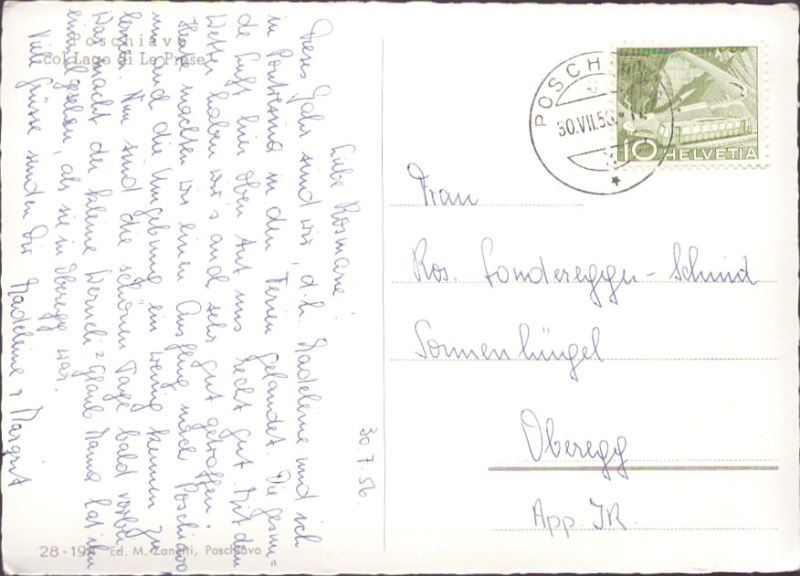 Poschiavo
col Lago di Le Prese
30.7.56.
Liebe Rosmarie!
Dieses Jahr sind wir, d.h. Madeleine und ich
in Pontresina in den Ferien gelandet. Die gesun=
de Luft hier oben tut uns recht gut. Mit dem
Wetter haben wir's auch sehr gut getroffen.
Heute machten wir einen Ausflug nach Poschiavo
um auch die Umgebung ein wenig kennen zu
lernen. Nun sind die schönen Tage bald vorbei.
Was macht der kleine Werneli? Glaub Mama hat ihn
einmal gesehen, als sie in Oberegg war.
Viele Grüsse senden Dir Madeleine & Margrit
28-19 Ed. M. Zanetti, Poschiavo
POSCH
30.VII.56
10 HELVETIA
Frau
Ros. Sonderegger-Schmid
Sonnenhügel
Oberegg
App. IR.